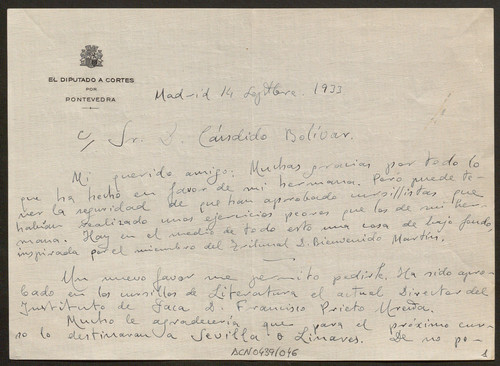 EL DIPUTADO A CORTES
POR
PONTEVEDRA
Madrid 14 Septbre. 1933
Sr. D. Cándido Bolívar.
Mi querido amigo: Muchas gracias por todo lo
que ha hecho en favor de mi hermana. Pero puede te-
ner la seguridad de que han aprobado cursillistas que
habían realizado unos ejercicios peores que los de mi her-
mana. Hay en el medio de todo esto una cosa de bajo fondo,
inspirada por el miembro del Tribunal D. Bienvenido Martín.
Un nuevo favor me permito pedirle. Ha sido apro-
bado en los cursillos de Literatura el actual Director del
Instituto de Jaca D. Francisco Prieto Ureña.
Mucho le agradecería que para el próximo cur-
so lo destinaran a Sevilla o Linares. De no po-
ACN0439/046
1